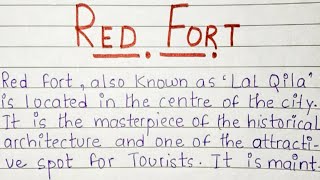 RED FORT
Red fort, also Known as 'Lal Qila'
is located in the centre of the city.
It is the masterpiece of the historical
architecture and one of the attracti-
ve spot for Tourists. It is maint-